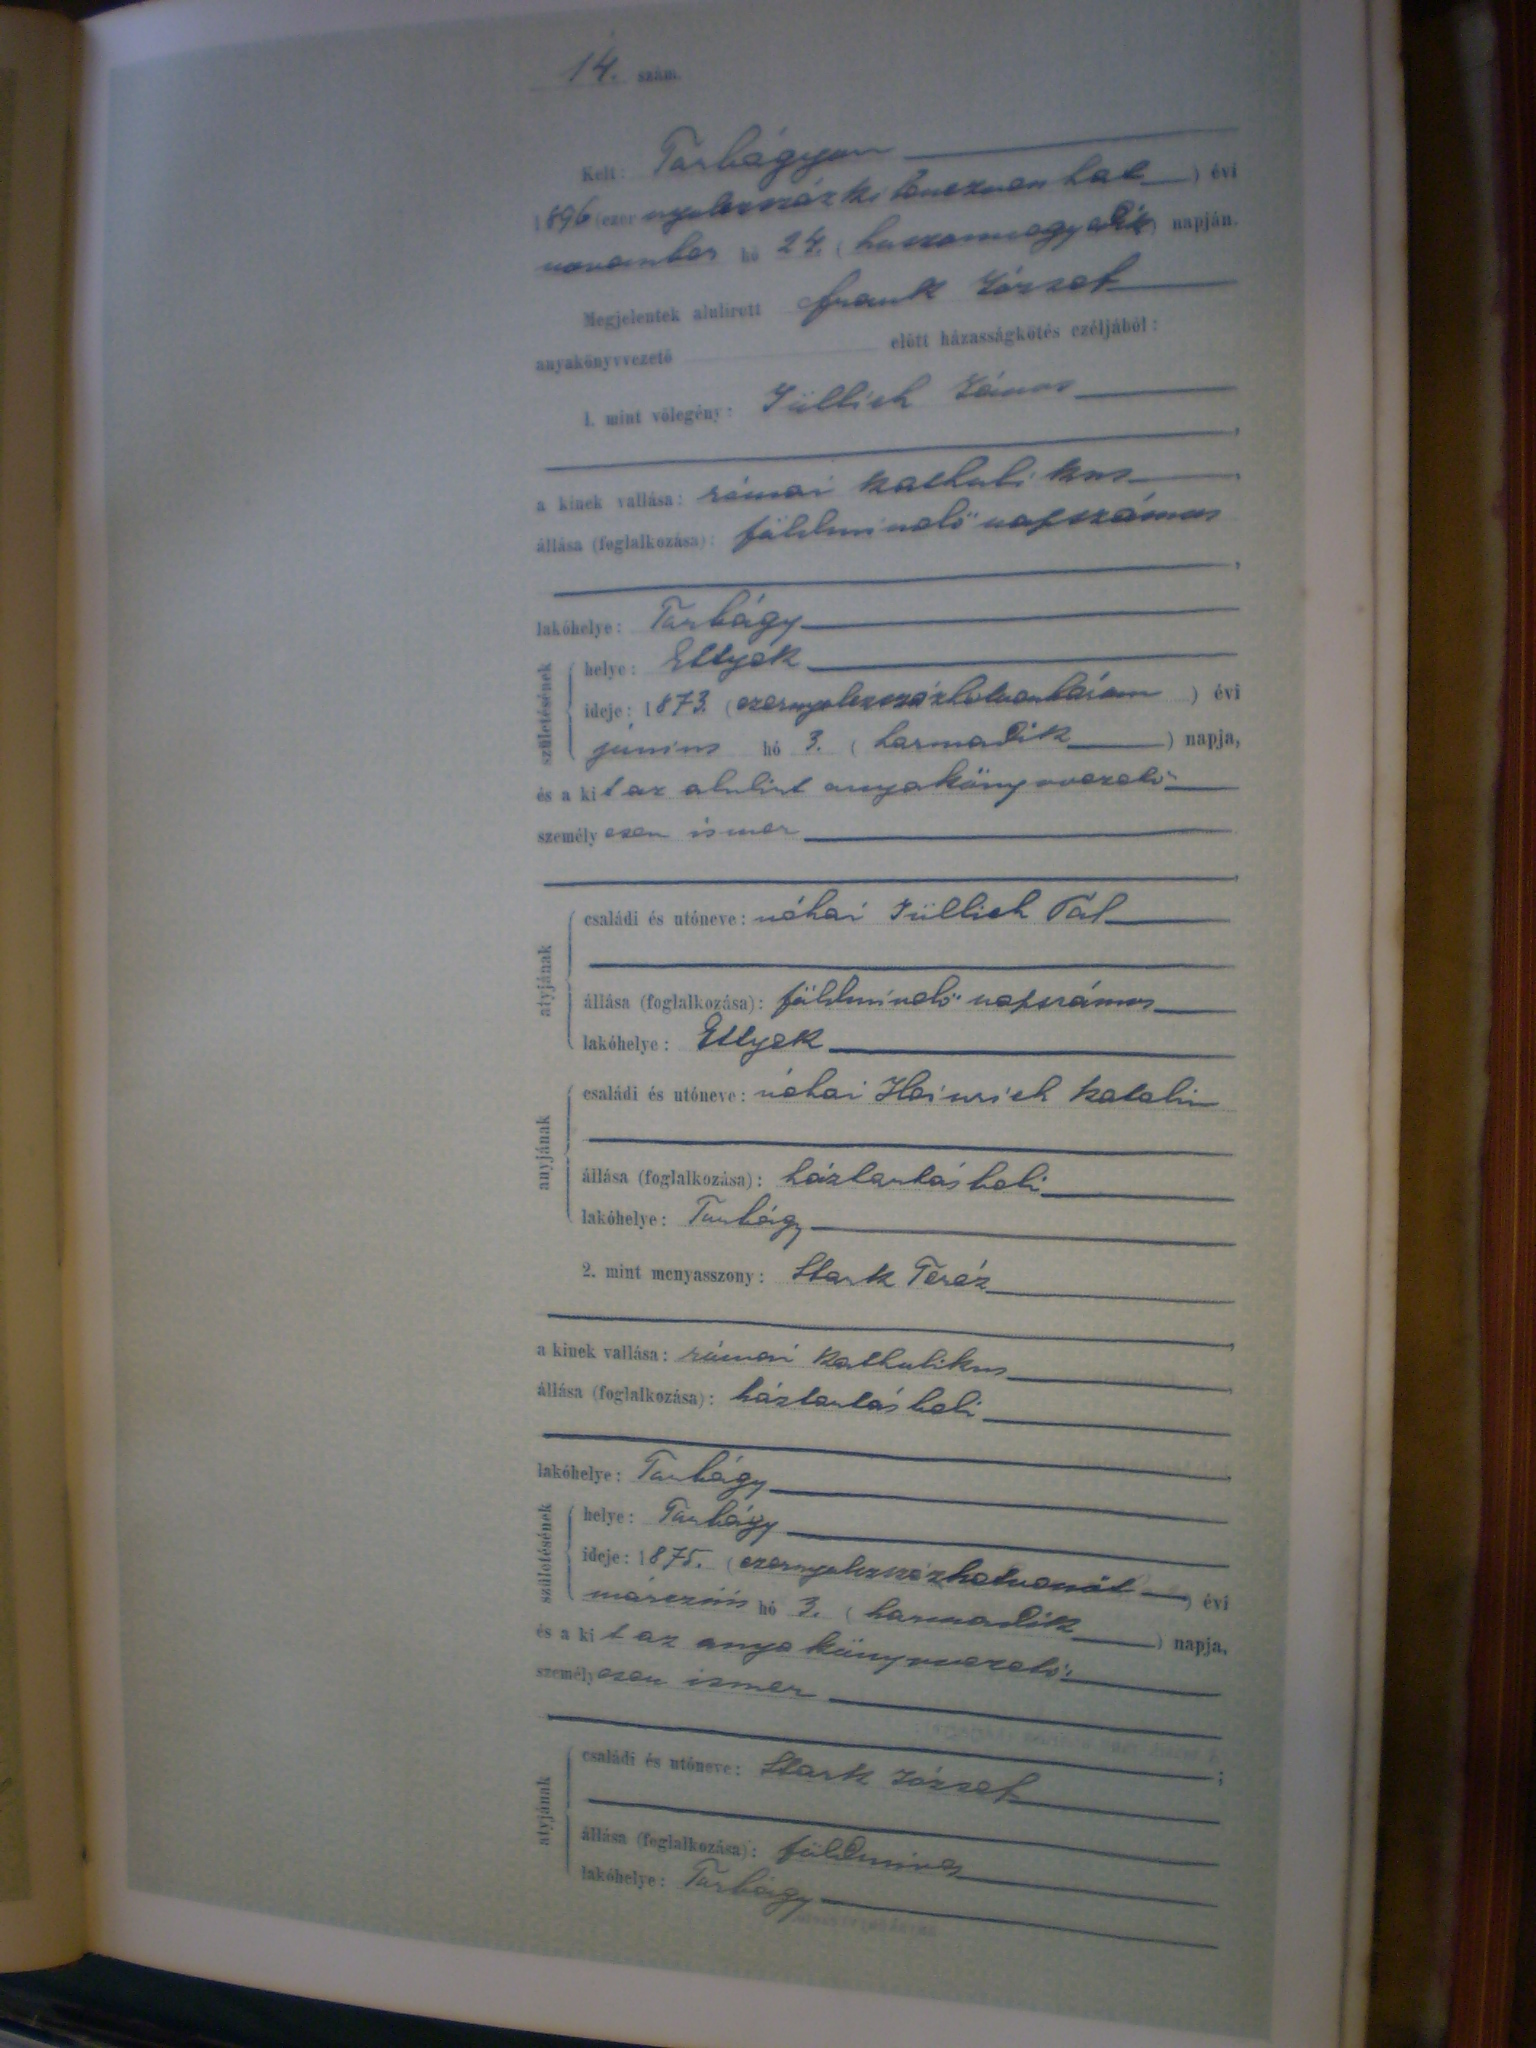 14. szám.
Kelt: Torbágyon
1896 (ezer nyolczszáz kilenczven hat) évi
november hó 24. (huszonnegyedik) napján.
Megjelentek alulirott Frank József
anyakönyvvezető előtt házasságkötés czéljából:
1. mint vőlegény: Jüllich János
a kinek vallása: római katholikus
állása (foglalkozása): földmivelő napszámos
lakóhelye: Torbágy
születésének
helye: Ettyek
ideje: 1873. (ezernyolczszázhetvenhárom) évi
június hó 3. (harmadik) napja,
és a kit az alulirt anyakönyvvezető
személyesen ismer
atyjának
családi és utóneve: néhai Jüllich Pál
állása (foglalkozása): földmivelő napszámos
lakóhelye: Ettyek
anyjának
családi és utóneve: néhai Heinrich Katalin
állása (foglalkozása): háztartásbeli
lakóhelye: Torbágy
2. mint menyasszony: Stark Teréz
a kinek vallása: római katholikus
állása (foglalkozása): háztartásbeli
lakóhelye: Torbágy
születésének
helye: Torbágy
ideje: 1875. (ezernyolczszázhetvenöt) évi
márczius hó 3. (harmadik) napja,
és a kit az anyakönyvvezető
személyesen ismer
atyjának
családi és utóneve: Stark József
állása (foglalkozása): földmives
lakóhelye: Torbágy